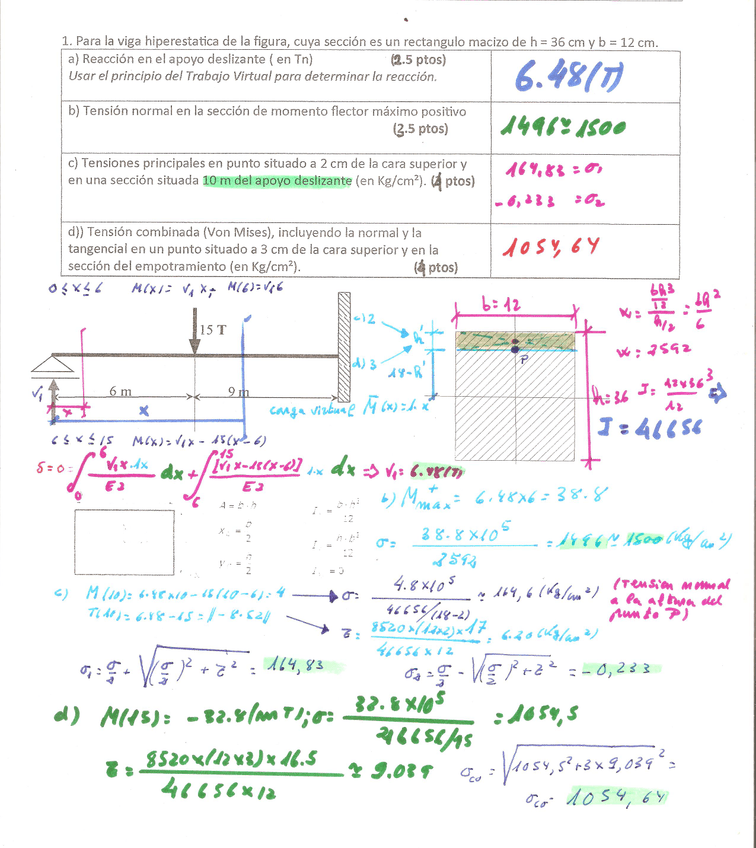 1. Para la viga hiperestatica de la figura, cuya sección es un rectangulo macizo de h = 36 cm y b = 12 cm.
a) Reacción en el apoyo deslizante ( en Tn) (2.5 ptos)
Usar el principio del Trabajo Virtual para determinar la reacción.
6.48(T)
b) Tensión normal en la sección de momento flector máximo positivo
(2.5 ptos)
1496≃1500
c) Tensiones principales en punto situado a 2 cm de la cara superior y
en una sección situada 10 m del apoyo deslizante (en Kg/cm²). ( ptos)
164,83 = σ₁
-0,233 = σ₂
d)) Tensión combinada (Von Mises), incluyendo la normal y la
tangencial en un punto situado a 3 cm de la cara superior y en la
sección del empotramiento (en Kg/cm²). ( ptos)
1054,64
0≤x≤6 M(x)= V₁x; M(6)=V₁6
15 T
c) 2
d) 3
h'
18-h'
b=12
P
h=36
W= bh³/12 / h/2 = bh²/6
W= 2592
I= 12x36³/12 ⇒
I = 46656
V₁
x
6 m
9 m
x
carga virtual M̄(x)=1.x
6≤x≤15 M(x)=V₁x-15(x-6)
δ=0= ∫₀⁶ V₁x.1x/EI dx + ∫₆¹⁵ [V₁x-15(x-6)]/EI 1.x dx ⇒ V₁= 6.48(T)
A = b·h
I = b·h³/12
x = b/2
I = h·b³/12
y = h/2
I = 0
b) M⁺max = 6.48x6 = 38.8
σ= 38.8x10⁵/2592 = 1496 ≃ 1500 (Kg/cm²)
c) M(10)= 6.48x10-15(10-6)=4
σ= 4.8x10⁵/46656/(18-2) ≃ 164,6 (Kg/cm²)
(Tension normal
a la altura del
punto P)
T(10)= 6.48-15=|-8.52|
τ= 8520x(12x2)x17/46656x12 = 6.20(Kg/cm²)
σ₁= σ/2 + √(σ/2)²+τ² = 164,83
σ₂= σ/2 - √(σ/2)²+τ² = -0,233
d) M(15)= -32.8(mT); σ= 32.8x10⁵/46656/15 = 1054,5
τ= 8520x(12x3)x16.5/46656x12 ≃ 9.039
σco = √1054,5²+3x9,039² =
σco = 1054,64